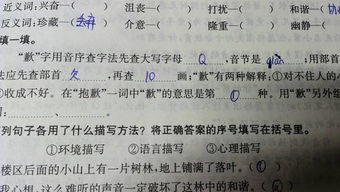 近义词:兴奋—(　　) 沮丧—(　　) 打扰—(　　) 和谐—(
反义词:珍藏—(丢弃) 介意—(　　) 隆重—(　　) 幽静—(
填一填。
“歉”字用音序查字法先查大写字母 Q ,音节是 qiàn ;用部首
法应先查部首 欠 ,再查 10 画;“歉”有两种解释:①对不住人的心
②收成不好。在“抱歉”一词中“歉”的意思是第 ① 种。用“歉”另外组
词:
列句子各用了什么描写方法? 将正确答案的序号填写在括号里。
①环境描写 ②语言描写 ③心理描写
楼区后面的小山上有一片树林,地上铺满了落叶。(①)
我心想:这么难听的声音一定破坏了这林中的和谐。